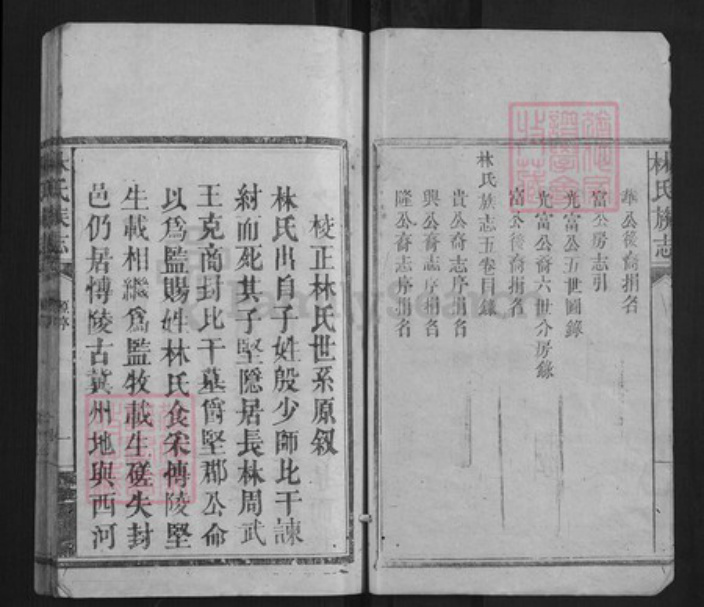 林氏族志
華公後裔捐名
富公房志引
光富公五世圖錄
光富公裔六世分房錄
富公後裔捐名
林氏族志五卷目錄
貴公裔志序捐名
興公裔志序捐名
隆公裔志序捐名
校正林氏世系原叙
林氏出自子姓殷少師比干諫
紂而死其子堅隱居長林周武
王克商封比干墓爵堅郡公命
以爲監賜姓林氏食采博陵堅
生載相繼爲監牧載生磋失封
邑仍居博陵古冀州地與西河
林氏族志
原叙
一